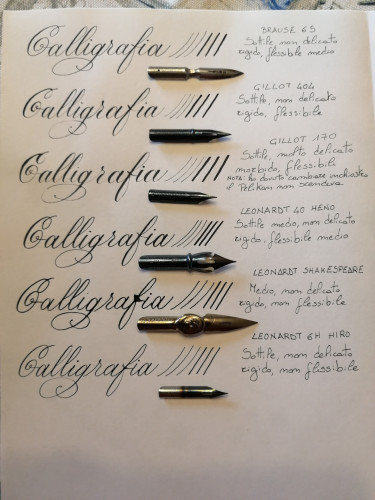 Calligrafia
BRAUSE 65
Sottile, non delicato
rigido, flessibile medio
Calligrafia
GILLOT 404
Sottile, non delicato
rigido, flessibile
Calligrafia
GILLOT 170
Sottile, molto delicato
morbido, flessibile
NOTA: ho dovuto cambiare inchiostro
il Pelikan non scendeva
Calligrafia
LEONARDT 40 HENO
Sottile medio, non delicato
rigido, flessibile medio
Calligrafia
LEONARDT SHAKESPEARE
Medio, non delicato
rigido, non flessibile
Calligrafia
LEONARDT 6H HIRO
Sottile, non delicato
rigido, non flessibile